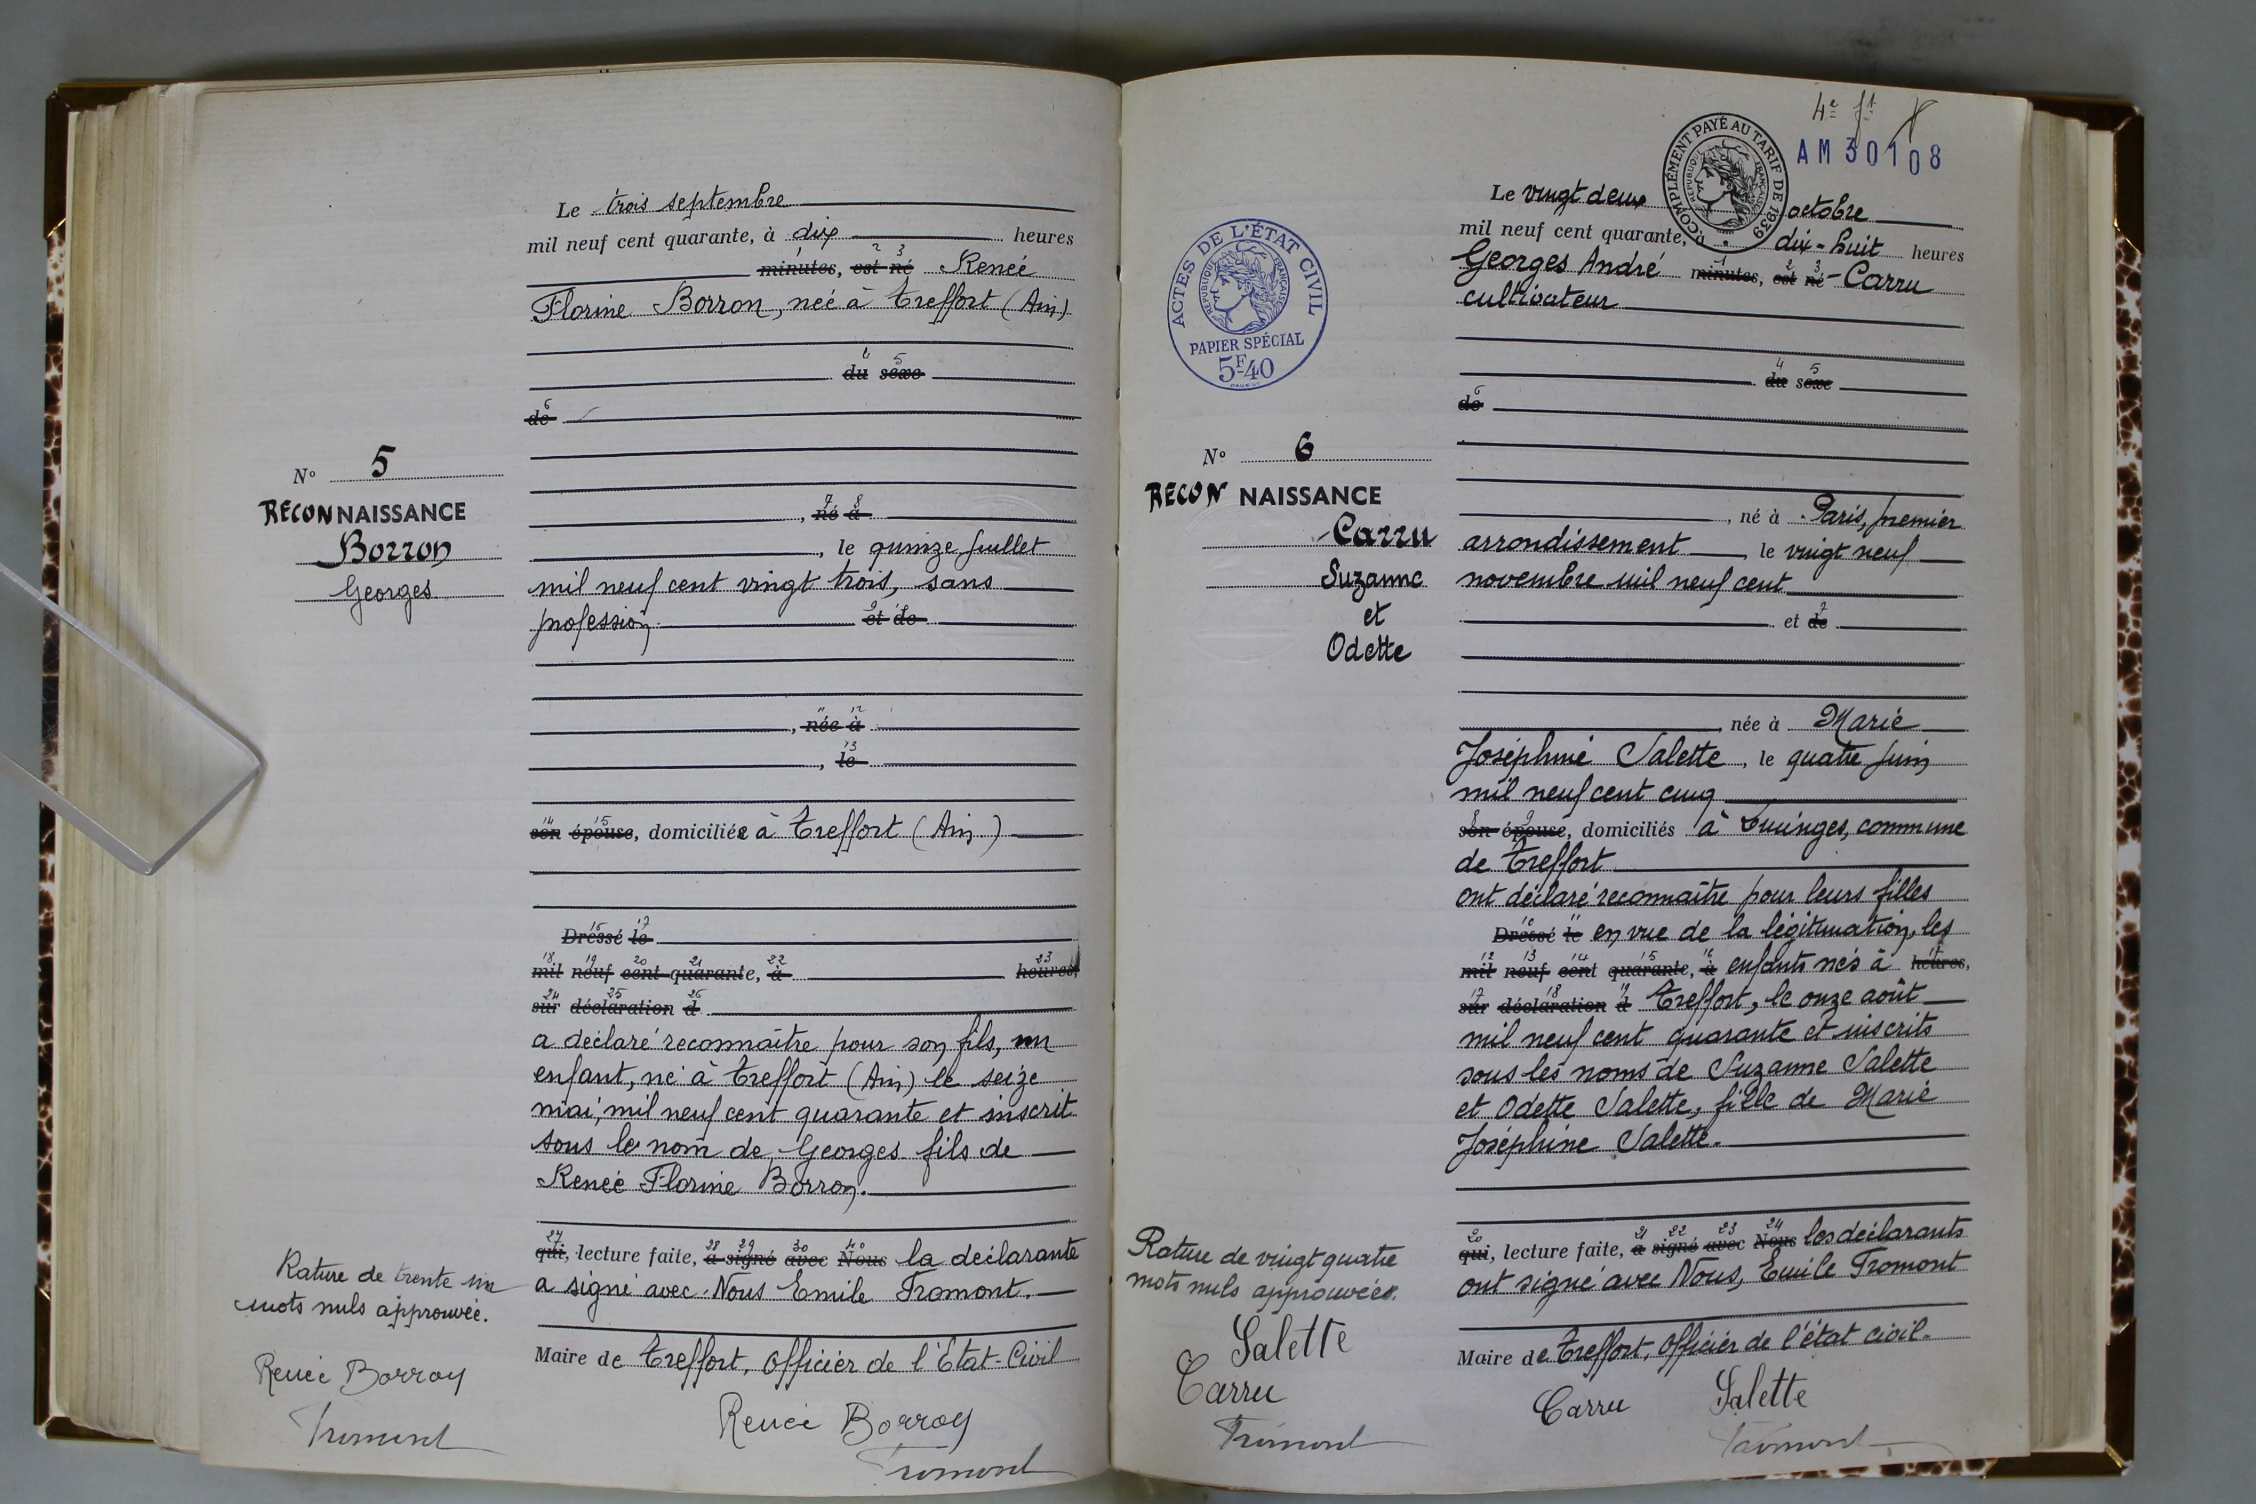 Le trois septembre
mil neuf cent quarante, à dix heures
minutes, est né Renée
Florine Borron, née à Treffort (Ain)
du sexe
de
N° 5
RECONNAISSANCE
Borron
Georges
, né à
, le quinze juillet
mil neuf cent vingt trois, sans
profession et de
, née à
, le
son épouse, domiciliée à Treffort (Ain)
Dressé le
mil neuf cent quarante, à heures,
sur déclaration d
a déclaré reconnaître pour son fils, un
enfant, né à Treffort (Ain) le seize
mai, mil neuf cent quarante et inscrit
sous le nom de Georges fils de
Renée Florine Borron.
qui, lecture faite, a signé avec Nous la déclarante
a signé avec Nous Emile Fromont.
Maire de Treffort, Officier de l'Etat-Civil
Rature de trente un
mots nuls approuvée.
Renée Borron
Fromont
Renée Borron
Fromont
4e
AM 30108
COMPLÉMENT PAYÉ AU TARIF DE 1939
RÉPUBLIQUE FRANÇAISE
ACTES DE L'ÉTAT CIVIL
RÉPUBLIQUE FRANÇAISE
PAPIER SPÉCIAL
5F40
Le vingt deux octobre
mil neuf cent quarante, à dix-huit heures
Georges André minutes, est né Carru
cultivateur
du sexe
de
N° 6
RECONNAISSANCE
Carru
Suzanne
et
Odette
, né à Paris, premier
arrondissement, le vingt neuf
novembre mil neuf cent
et de
, née à Marie
Joséphine Salette, le quatre juin
mil neuf cent cinq
son épouse, domiciliés à commune
de Treffort
ont déclaré reconnaître pour leurs filles
Dressé le en vue de la légitimation, les
mil neuf cent quarante, à enfants nés à heures,
sur déclaration d Treffort, le onze août
mil neuf cent quarante et inscrits
sous les noms de Suzanne Salette
et Odette Salette, fille de Marie
Joséphine Salette.
qui, lecture faite, a signé avec Nous les déclarants
ont signé avec Nous, Emile Fromont
Maire de Treffort, Officier de l'état civil.
Rature de vingt quatre
mots nuls approuvée.
Salette
Carru
Fromont
Carru Salette
Fromont